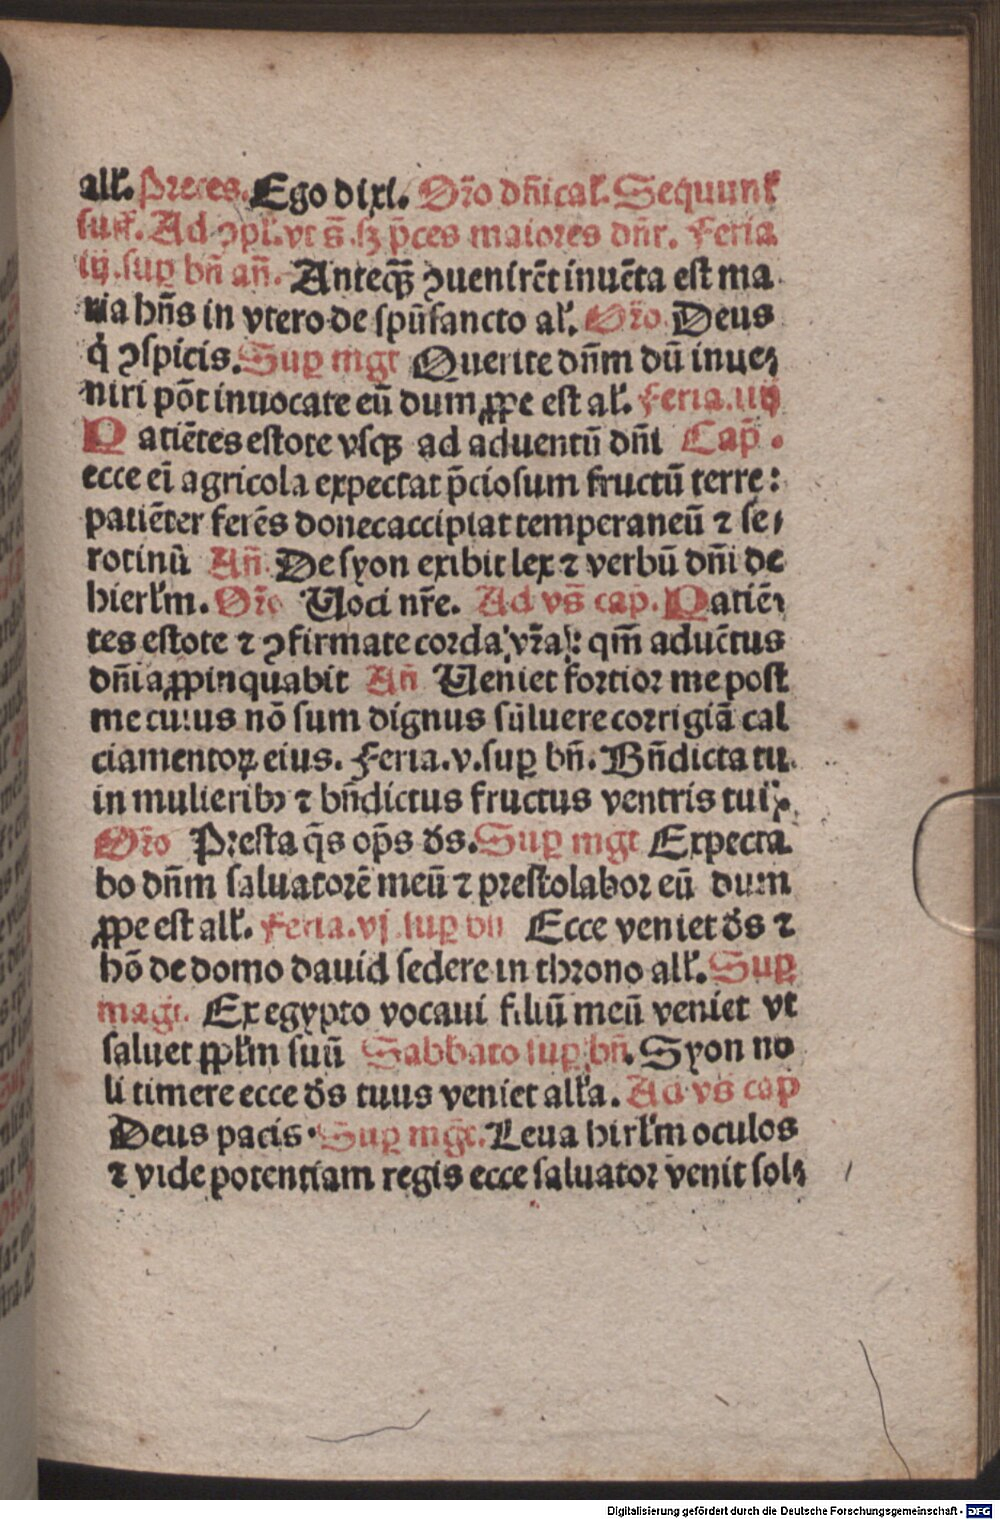 all̉. Preces. Ego dixi. Or̃o dñical̉. Sequunt̉
suff̉. Ad ꝯpl̉. vt s̃. sꝫ p̃ces maiores dñr. Feria
iij. suꝑ bñ añ. Anteqꝫ̃ ꝯuenirẽt inuẽta est ma
ria hñs in vtero de spũsancto al̉. Or̃o Deus
q̉ ꝯspicis. Suꝑ mgt Querite dñm dũ inue⸗
niri põt inuocate eũ dum ꝓpe est al̉. Feria. iiij
Patiẽtes estote vsqꝫ ad aduentũ dñi Cap̃.
ecce eĩ agricola expectat p̃ciosum fructũ terre:
patiẽter ferẽs donec accipiat temperaneũ ⁊ se⸗
rotinũ Añ. De syon exibit lex ⁊ verbũ dñi de
hierl̉m. Or̃o Uoci nr̃e. Ad vs̃ cap̃. Patiẽ⸗
tes estote ⁊ ꝯfirmate corda vr̃a: qm̃ aduẽtus
dñi appinquabit Añ Ueniet fortior me post
me cuius nõ sum dignus sũluere corrigiã cal
ciamentoꝝ eius. Feria. v. suꝑ bñ. Bñdicta tu
in mulieribꝫ ⁊ bñdictus fructus ventris tui.
Or̃o Presta q̃s op̃s ds̃. Suꝑ mgt Expecta
bo dñm saluatorẽ meũ ⁊ prestolabor eũ dum
ꝓpe est all̉. Feria. vj suꝑ bñ Ecce veniet ds̃ ⁊
hõ de domo dauid sedere in throno all̉. Suꝑ
magt. Ex egypto vocaui filiũ meũ veniet vt
saluet ppl̉m suũ Sabbato suꝑ bñ. Syon no
li timere ecce ds̃ tuus veniet all̉a. Ad vs̃ cap
Deus pacis. Suꝑ mgt̃. Leua hirl̉m oculos
⁊ vide potentiam regis ecce saluator venit sol⸗
Digitalisierung gefördert durch die Deutsche Forschungsgemeinschaft - DFG